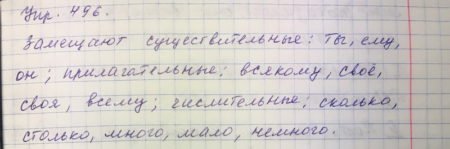 Упр. 496.
Замещают существительные: ты, ему,
он; прилагательные: всякому, своё,
своя, всему; числительные: сколько,
столько, много, мало, немного.